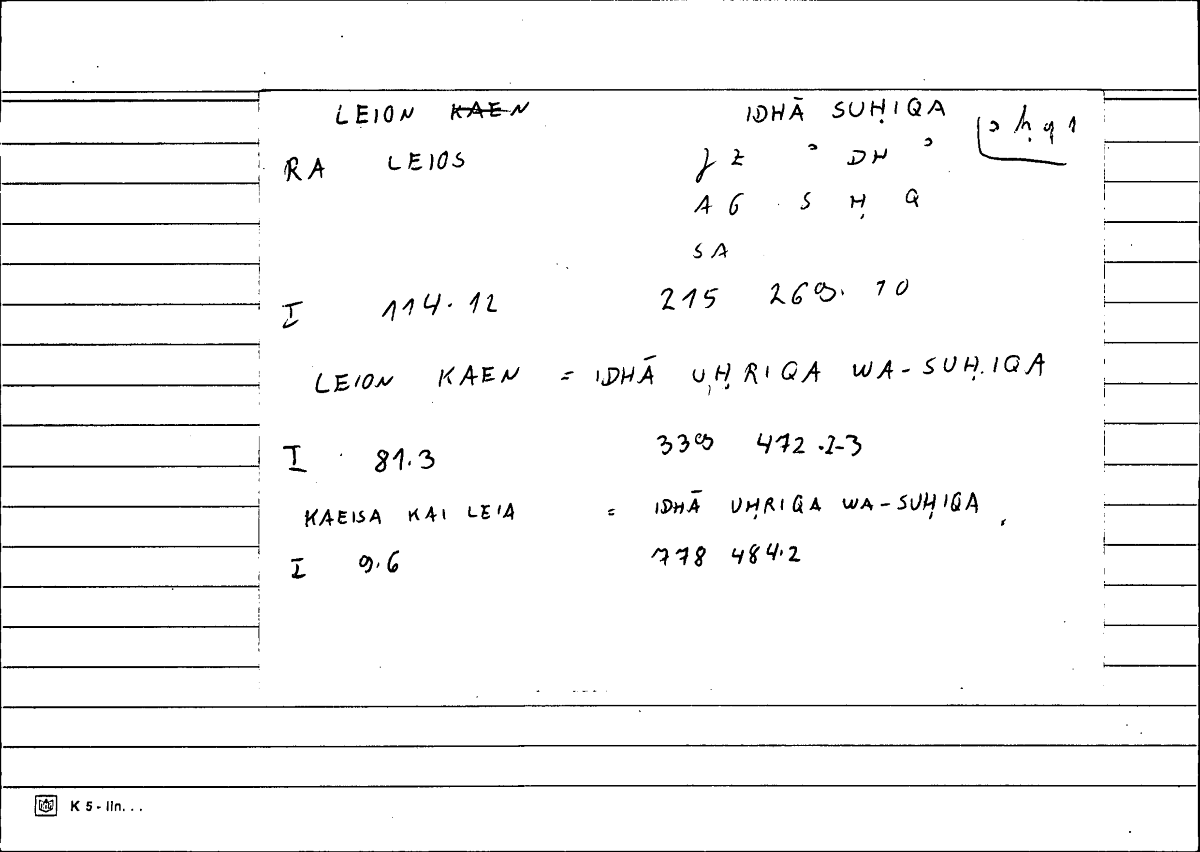 LEION KAEN IDHĀ SUḤIQA
RA LEIOS ʾ DH ʾ
AG S Ḥ Q
SA
I 114.12 215 269. 10
LEION KAEN = IDHĀ UḤRIQA WA-SUḤIQA
I 81.3 339 472.2-3
KAEISA KAI LEIA = IDHĀ UḤRIQA WA-SUḤIQA
I 9.6 778 484.2
K 5 - lin...